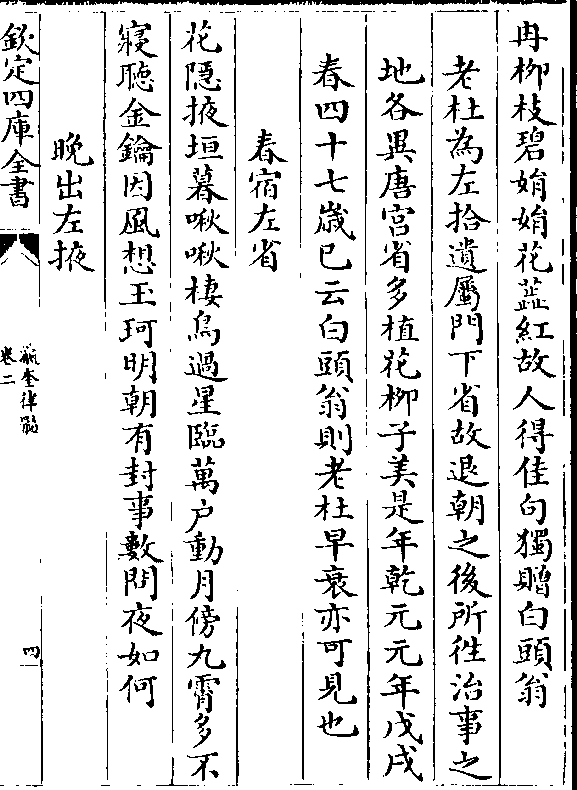 冉柳枝碧娟娟花蘂紅故人得佳句獨贈白頭翁
老杜為左拾遺屬門下省故退朝之後所徃治事之
地各異唐宫省多植花柳子美是年乾元元年戊戌
春四十七歳已云白頭翁則老杜早衰亦可見也
春宿左省
花隱掖垣暮啾啾棲鳥過星臨萬户動月傍九霄多不
寢聽金鑰因風想玉珂明朝有封事數問夜如何
晩出左掖
欽定四庫全書
瀛奎律髓
卷二
四